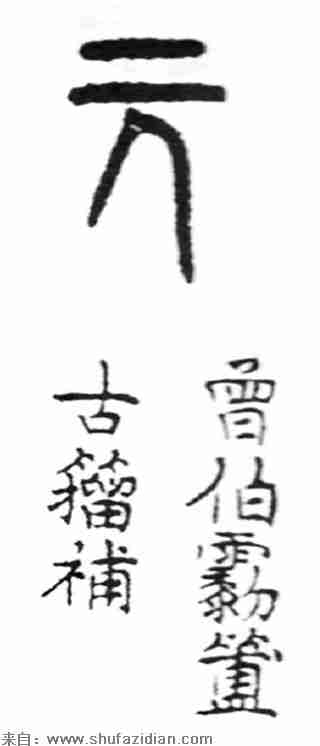 元
曾伯簠
古籀補
来自：www.shufazidian.com